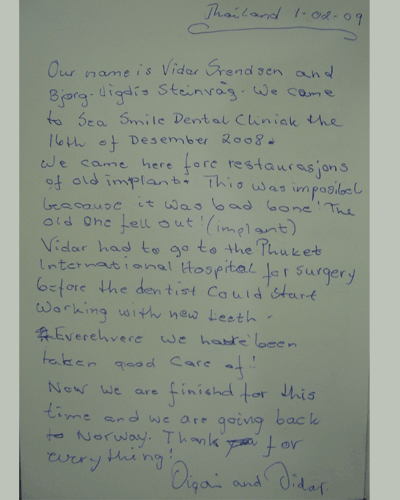 Thailand 1-02-09
Our name is Vidar Svendsen and
Bjørg-Vigdis Steinvåg. We came
to Sea Smile Dental Clinick the
16th of Desember 2008.
We came here fore restaurasjons
of old implant. This was imposibel
beacause it was bad bone! The
old one fell out! (implant)
Vidar had to go to the Phuket
International Hospital for surgery
before the dentist Could start
working with new teeth.
Everehvere we have been
taken good Care of!
Now we are finishd for this
time and we are going back
to Norway. Thank you for
everything!
Vigdis and Vidar